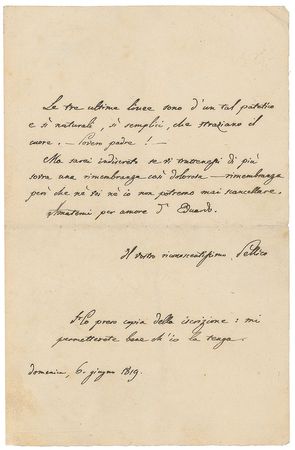 Le tre ultime linee sono d'un tal patetico
e sì naturali, sì semplici, che straziano il
cuore. — Povero padre! —
Ma sarei indiscreto se vi trattenessi di più
sovra una rimembranza così dolorosa — rimembranza
però che nè voi nè io non potremo mai scancellare.
Amatemi per amore d' Eduardo.
Il vostro riconoscentissimo Pellico
Ho preso copia della iscrizione: mi
permetterete bene ch'io la tenga.
domenica, 6. giugno 1819.